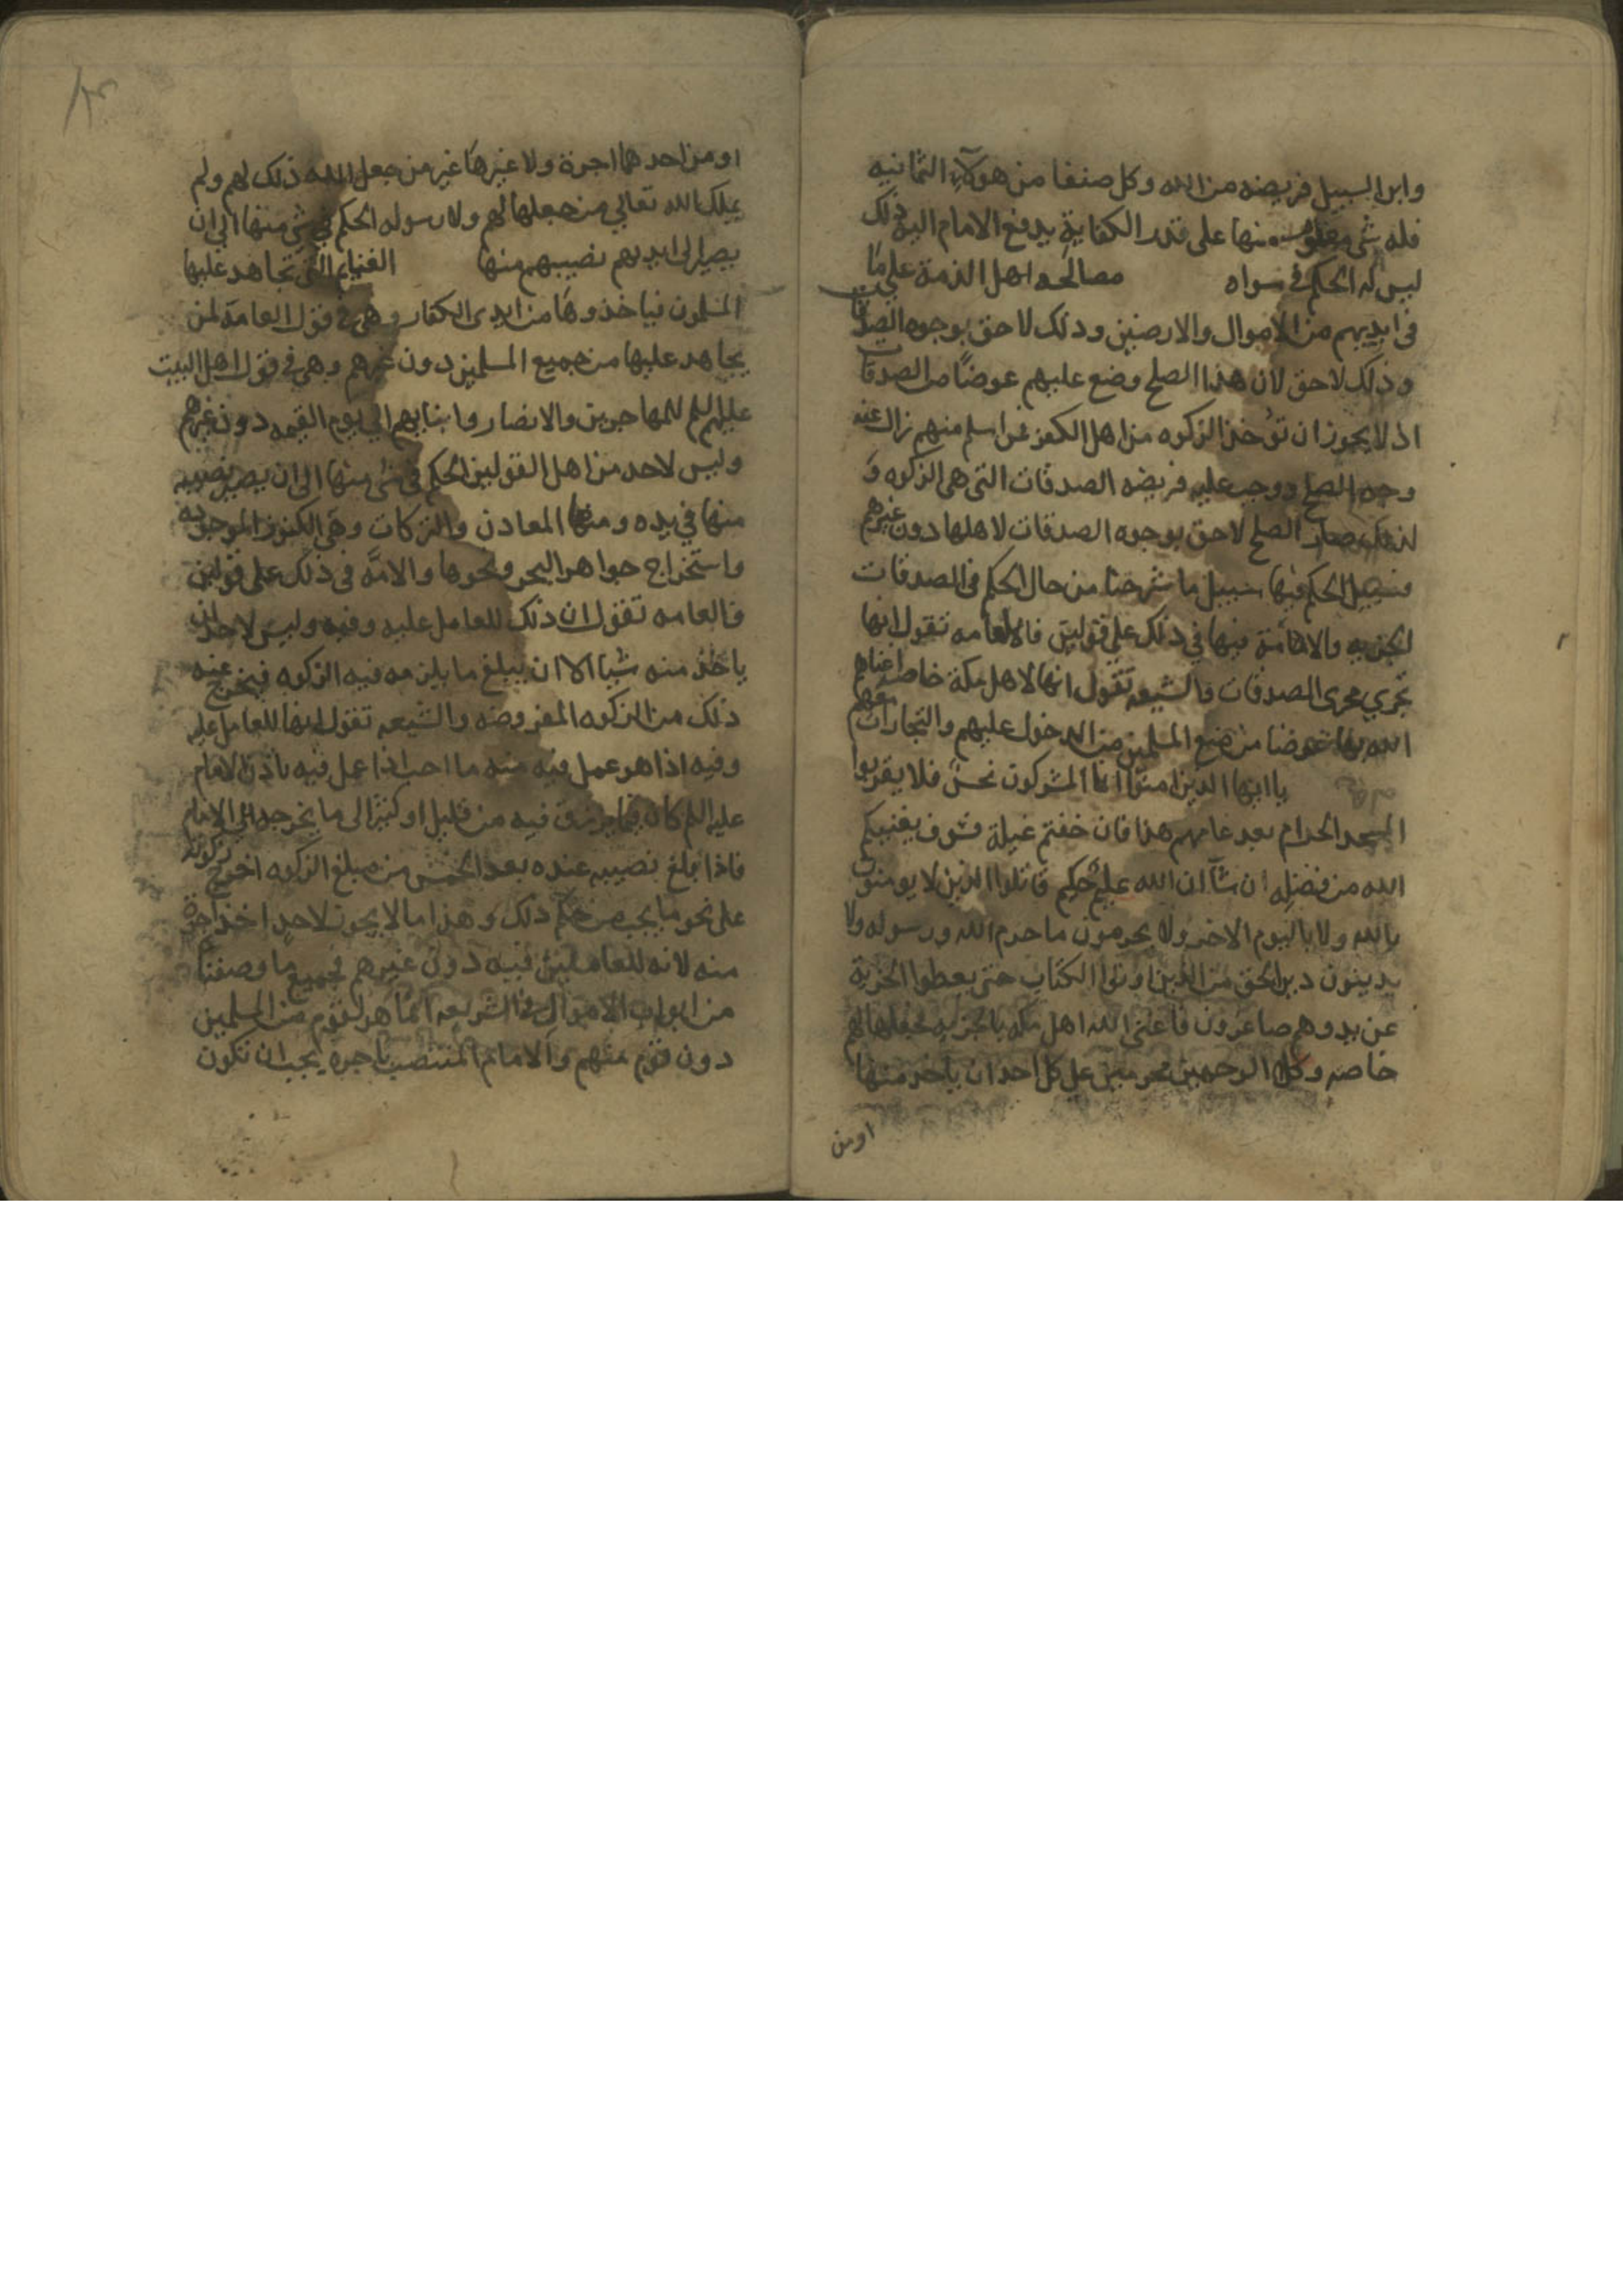 وابن السبيل فريضه من الله وكل صنفا من هولآء الثمانيه
فله شى معلوم منها على قدر الكفاية يدفع الامام اليه ذلك
ليس له الحكم فى سواه مصالحه اهل الذمة على ما
فى ايديهم من الاموال والارضين وذلك لاحق بوجوه الصدقات
وذلك لاحق لان هذا الصلح وضع عليهم عوضًا من الصدقات
اذ لا يجوز ان تؤخذ الزكوه من اهل الكفر فمن اسلم منهم زال عنه
وجه الصلح ووجب عليه فريضه الصدقات التى هى الزكوه و
لذلك صار الصلح لاحق بوجوه الصدقات لاهلها دون غيرهم
فسبيل الحكم فيها سبيل ما شرحنا من حال الحكم فى الصدقات
الجزيه والامة فيها في ذلك على قولين فالعامه تقول انها
تجري مجرى الصدقات والشيعه تقول انها لاهل مكة خاصه اغناهم
الله بها عوضا من منع المسلمين من الدخول عليهم والتجارات معهم
ياايها الذين امنوا انما المشركون نجس فلا يقربوا
المسجد الحرام بعد عامهم هذا فان خفتم عيلة فسوف يغنيكم
الله من فضله ان شآ ان الله عليم حكيم قاتلوا الذين لا يومنون
بالله ولا باليوم الاخر ولا يحرمون ما حرم الله ورسوله ولا
يدينون دين الحق من الذين اوتوا الكتاب حتى يعطوا الجزية
عن يد وهم صاغرون فاغنى الله اهل مكه بالجزيه فجعلها لهم
خاصه وكلا الوجهين محرمين على كل احد ان ياخذ منها
اومن
او من احدهما اجرة ولا غيرها غير من جعل الله ذلك لهم ولم
يملك الله تعالي من جعلها لهم ولا رسوله الحكم في شى منها الي ان
يصير الى ايديهم نصيبهم منها الغنايم التى تجاهد عليها
المسلمون فياخذوها من ايدى الكفار وهى فى قول العامة لمن
يجاهد عليها من جميع المسلمين دون غيرهم وهى في قول اهل البيت
عليهم السلم للمهاجرين والانصار وابنايهم الي يوم القيمه دون غيرهم
وليس لاحد من اهل القولين الحكم فى شى منها الى ان يصير نصيبه
منها في يده ومنها المعادن والركات وهى الكنوز الموجوده
واستخراج جواهر البحر ونحوها والامه فى ذلك على قولين
فالعامه تقول ان ذلك للعامل عليه وفيه وليس لاحد ان
ياخذ منه شيا الا ان يبلغ ما يلزمه فيه الزكوه فيخرج عنه
ذلك من الزكوه المفروضه والشيعه تقول انها للعامل عليه
وفيه اذا هو عمل فيه منه ما احب اذا عمل فيه باذن الامام
عليه السلم كان فيما يرزق فيه من قليل او كثير الى ما يخرجه الي الامام
فاذا بلغ نصيبه عنده بعد الخمس من مبلغ الزكوه اخرج زكوته
على نحو ما يجب من حكم ذلك وهذا ما لا يجوز لاحد اخذ اجرة
منه لانه للعاملين فيه دون غيرهم فجميع ما وصفنا
من ابواب الاموال فى الشريعه انما هو لقوم من المسلمين
دون قوم منهم والامام المنتصب باجره يجب ان تكون